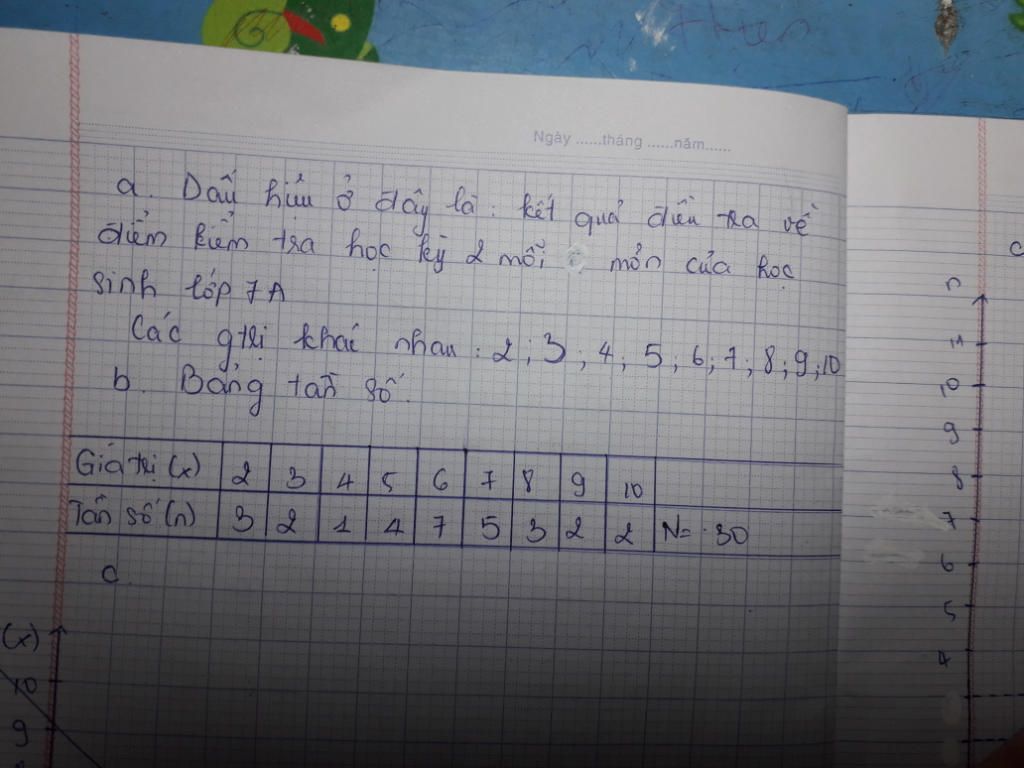 Ngày ......tháng ......năm......
a. Dấu hiệu ở đây là: kết quả điều tra về
điểm kiểm tra học kỳ 2 mỗi môn của học
sinh lớp 7A
Các gtrị khác nhau: 2; 3; 4; 5; 6; 7; 8; 9; 10
b. Bảng tần số.
Giá trị (x) 2 3 4 5 6 7 8 9 10
Tần số (n) 3 2 1 4 7 5 3 2 2 N= 30
c.
(x)
10
9
c
n
11
10
9
8
7
6
5
4